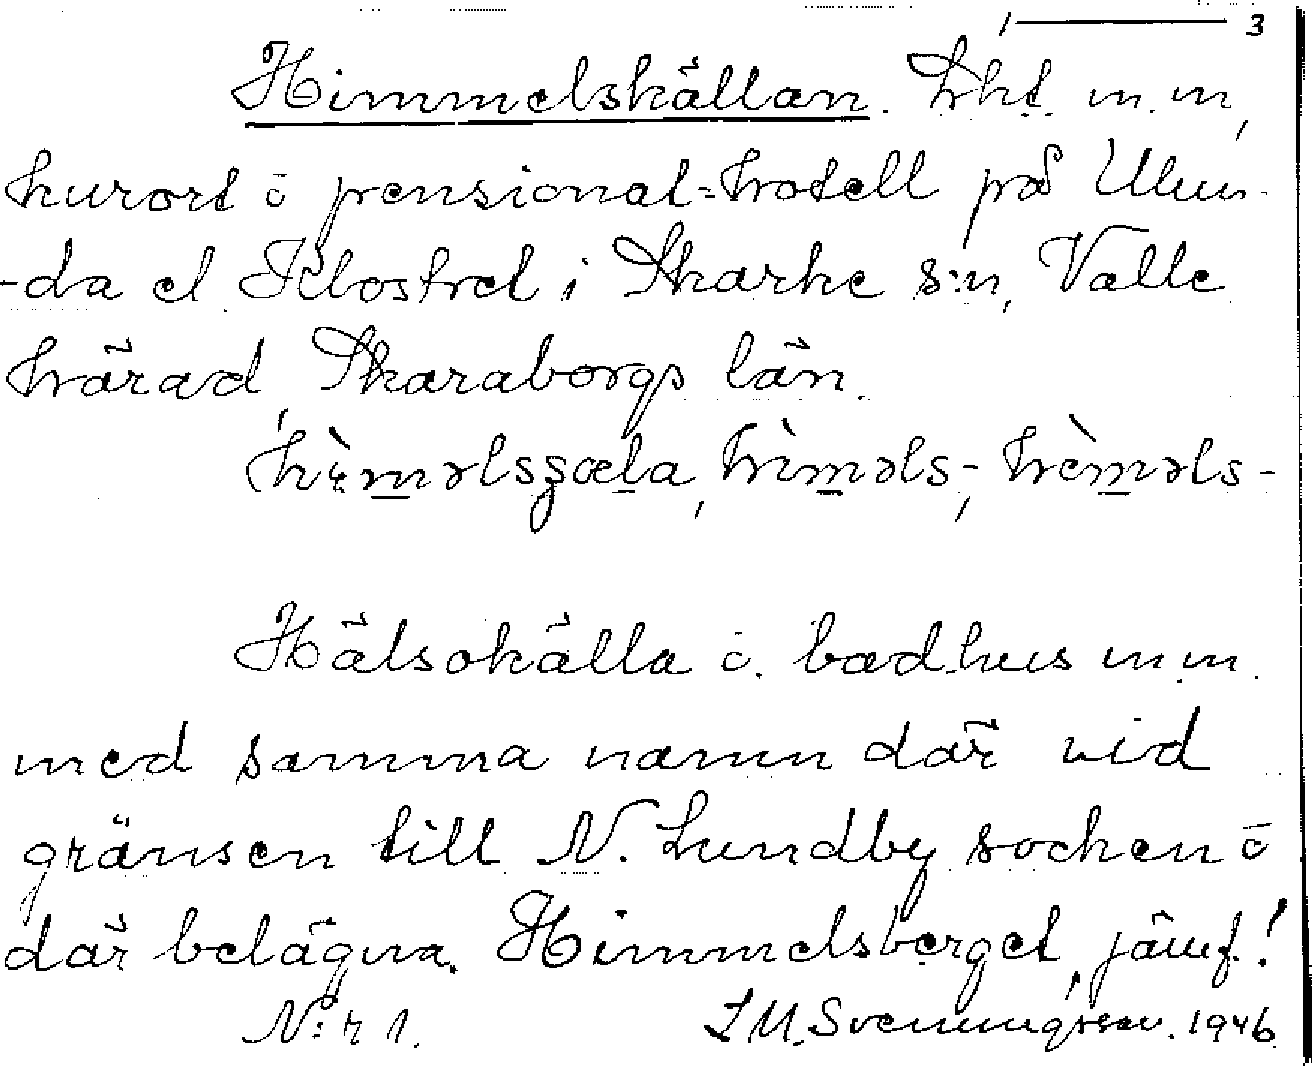 1 — 3
Himmelskällan. Lht. m.m,
kurort o pensionat-hotell på Ulun-
-da el Klostret i Skarke s:n, Valle
härad, Skaraborgs län.
hìməls-, hèməls-
Hälsokälla o. badhus m.m.
med samma namn där vid
gränsen till N. Lundby socken o
där belägna. Himmelsberget, jämf.!
N:r 1. I M. Svenungsson. 1946.